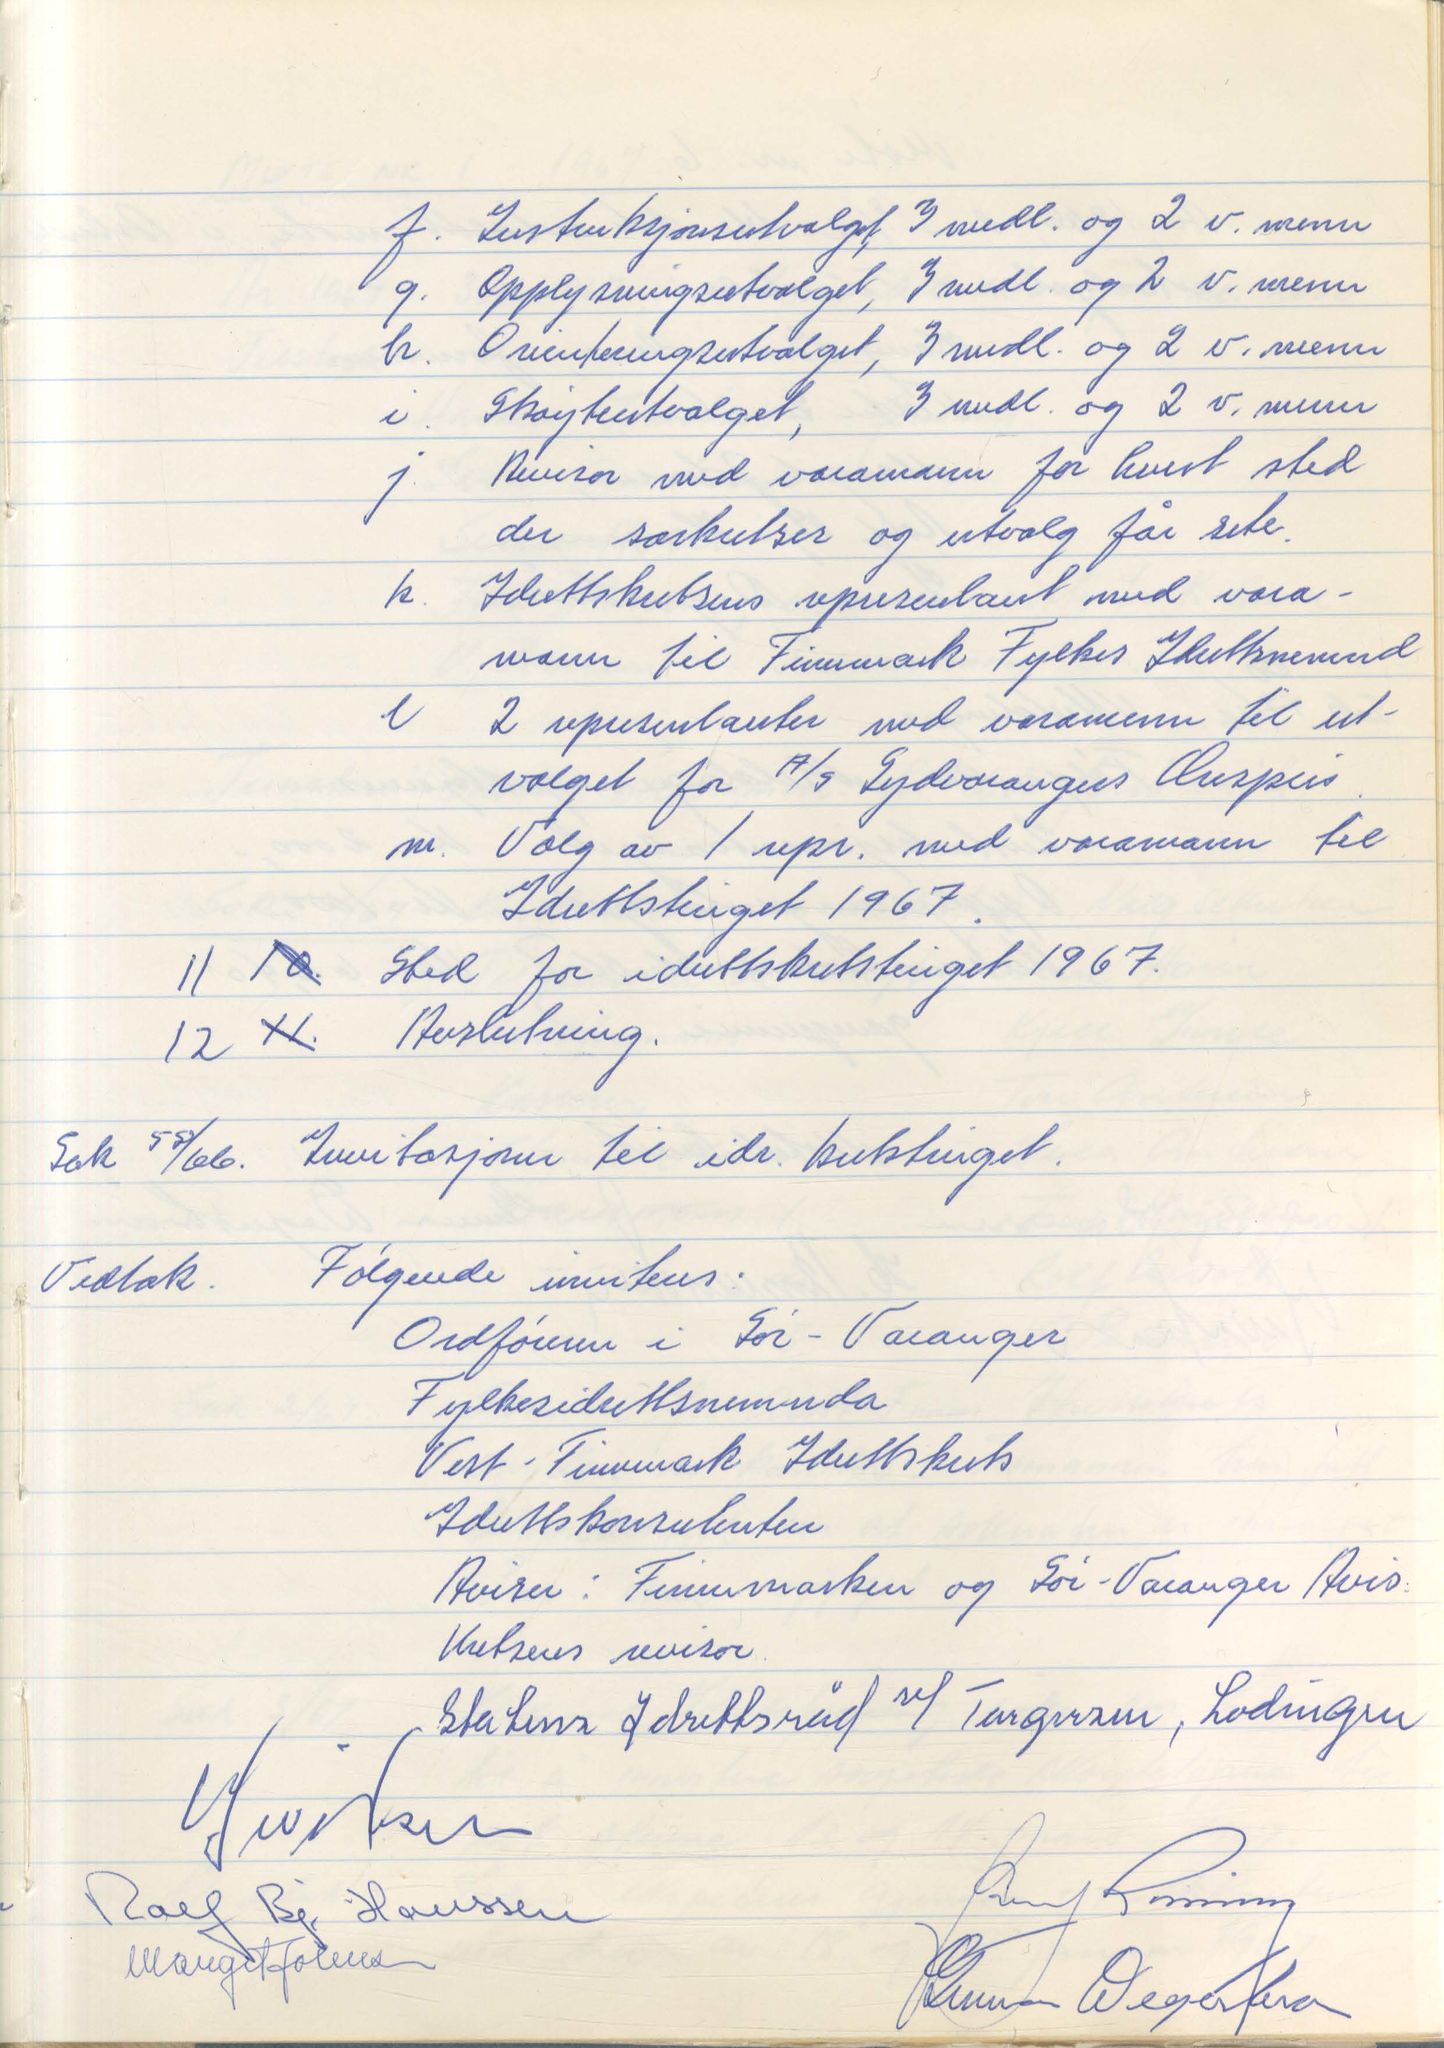 f. Instruksjonsutvalget, 3 medl. og 2 v. menn
g. Opplysningsutvalget, 3 medl. og 2 v. menn
h. Orienteringsutvalget, 3 medl. og 2 v. menn
i. Skøyteutvalget, 3 medl. og 2 v. menn
j. Revisor med varamann for hvert sted
der særkretser og utvalg får sete.
k. Idrettskretsens representant med vara-
mann til Finnmark Fylkes Idrettsnemnd
l 2 representanter med varamenn til ut-
valget for A/S Sydvarangers Ærespris.
m. Valg av 1 repr. med varamann til
Idrettstinget 1967.
11 10. Sted for idrettskretstinget 1967.
12 11. Avslutning.
Sak 58/66. Invitasjoner til idr. kretstinget.
Vedtak. Følgende inviteres:
Ordføreren i Sør-Varanger
Fylkesidrettsnemnda
Vest-Finnmark Idrettskrets
Idrettskonsulenten
Aviser: Finnmarken og Sør-Varanger Avis.
Kretsens revisor.
Statens Idrettsråd v/ Torgersen, Lødingen
Rolf Bj. Hanssen
Margit
Gunnar